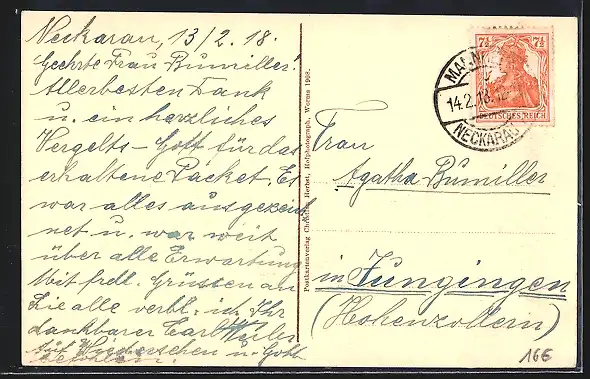 Neckarau, 13/2.18.
Geehrte Frau Bumiller!
Allerbesten Dank
u. ein herzliches
Vergelts-Gott für das
erhaltene Packet. Es
war alles ausgezeich
net u. war weit
über alle Erwartung
Mit frdl. Grüssen an
Sie alle verbl. ich Ihr
dankbarer Carl
Auf Wiedersehen u. Gott
befohlen!
Postkartenverlag Christian Herbst, Hofphotograph, Worms 1908.
7½ 7½
DEUTSCHES REICH
14.2.18.
NECKARAU
Frau
Agatha Bumiller
in Jungingen
(Hohenzollern)
166